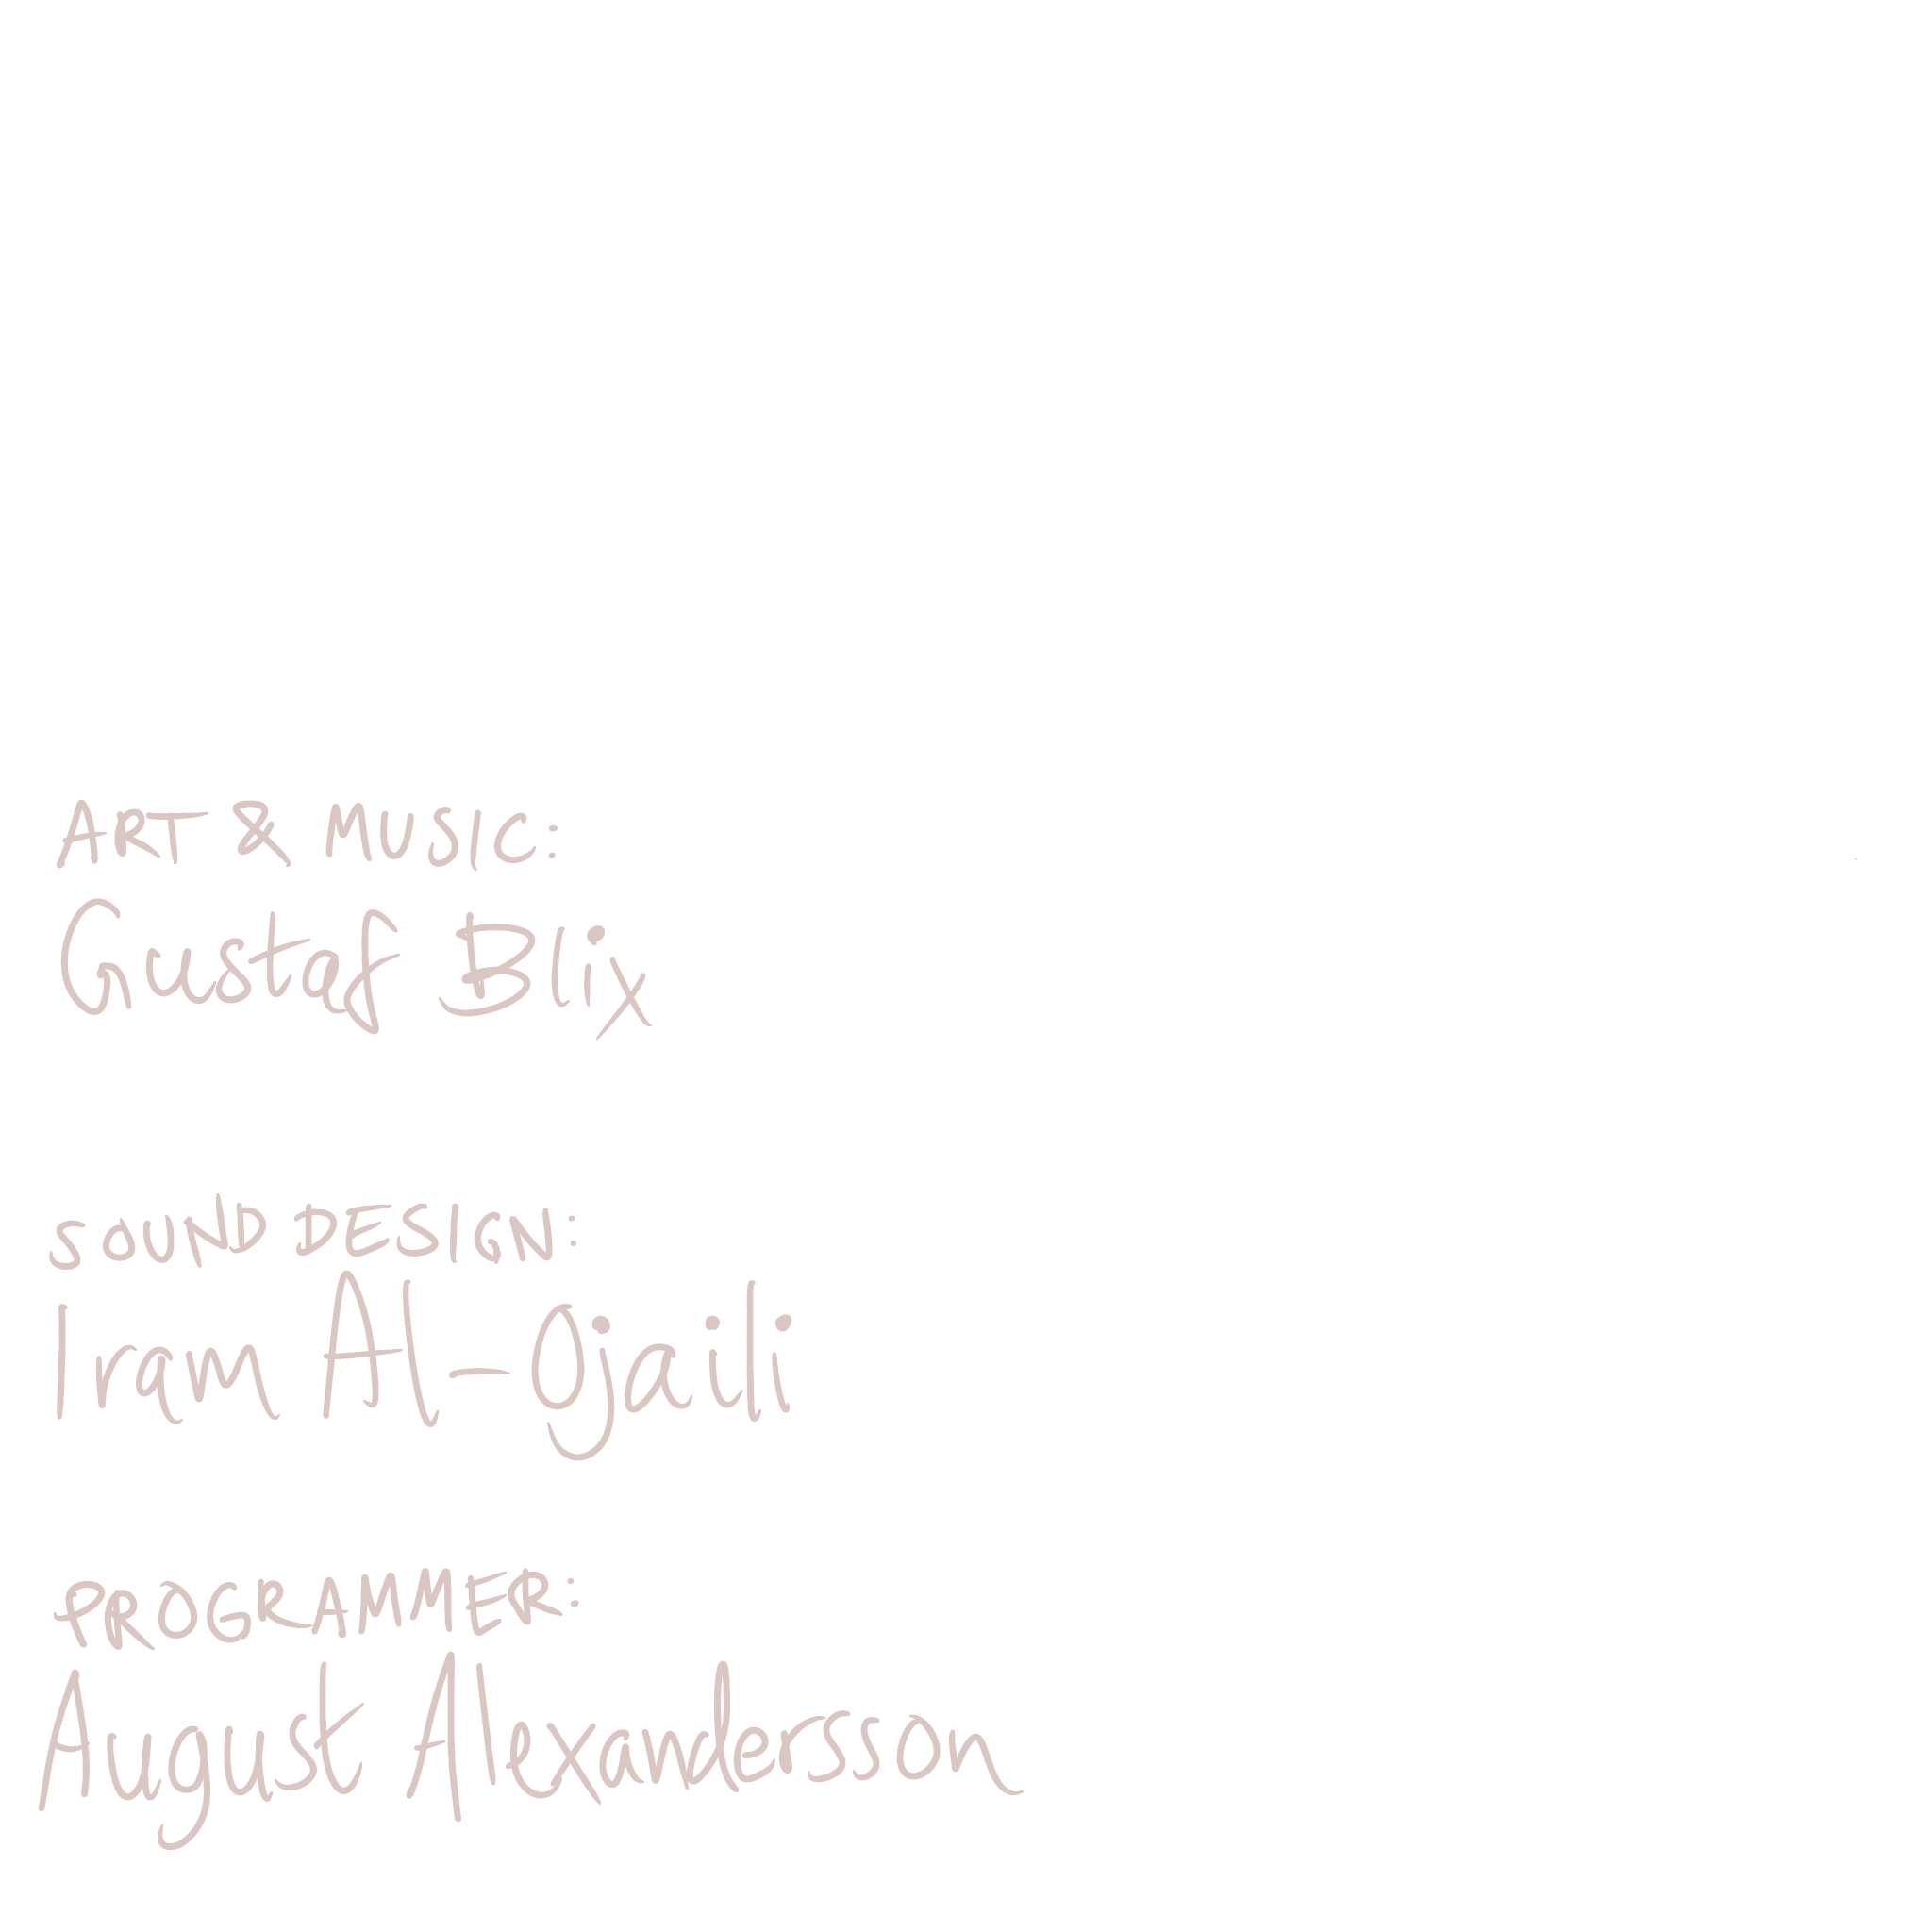 ART & MUSIC:
Gustaf Blix
SOUND DESIGN:
Iram Al-gjaili
PROGRAMMER:
August Alexandersson